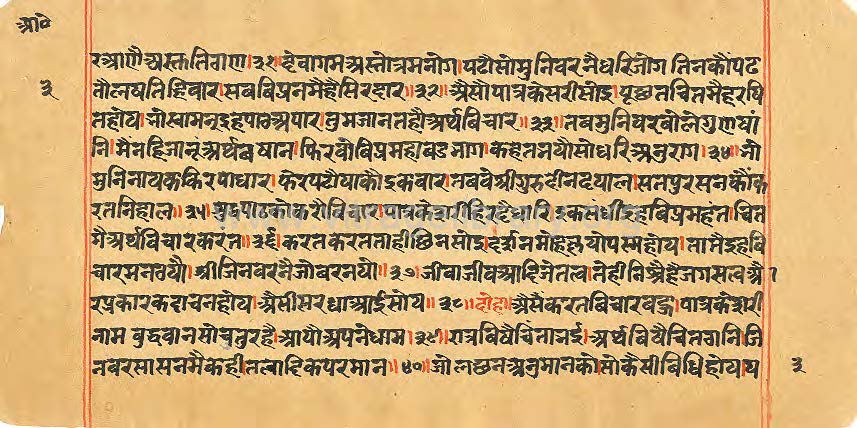 आ०
३
रआणैअस्तुतिगण।३१।देवागमअस्तोत्रमनोग।पढौसोमुनिवरनैधरिजोग तिनकौंपढ
तौलषतिहिवार।सबविप्रनमैहैसिरदार॥३२॥अैसौपात्रकेसरीसोइ।पूछतचितमैहरषि
तहोय।भोस्वामनइहपाठअपार।तुमजानतहौअर्थविचार॥३३॥तबमुनिवरबोलेगुणषां
नि।मैनहिजानूंअर्थबषान।फिरवोविप्रमहाबडभाग।कहतनयौसोधरिअनुराग।३४।भो
मुनिनायककिरपाधार।फेरपढौयाकौइकवार।तबवेश्रीगुरुदीनदयाल।सतपुरसनकौंक
रतनिहाल॥३५।सुधपाठकोकरौविचार।पात्रकेसरीहिरदैधारि।इकसंधीइहविप्रमहंत।चित
मैअर्थविचारकरत॥३६।करतकरतताहीछिनसोइ।दर्शनमोहछयोपस्महोय।तामैइहवि
चारमनठयौ।श्रीजिनवरनैजोवरनयौ।३७।जीवाजीवआदिजेतत्व।तेहीनिश्चैहैजगसत्व।और
रप्रकारकदाचनहोय।अैसीसरधाआईसोय॥३८॥दोहा॥अैसेंकरतविचारबहु।पात्रकेशरी
नाम बुद्धवानसोचतुरहै।आयौअपनेधाम।३९।रात्रविषैचिंताभई।अर्थविषैचितठानि।जि
नवरसासनमैकही।तत्वादिकपरमान॥४०॥जोलछनअनुमानको।सोकैसीबिधिहोय।य
३